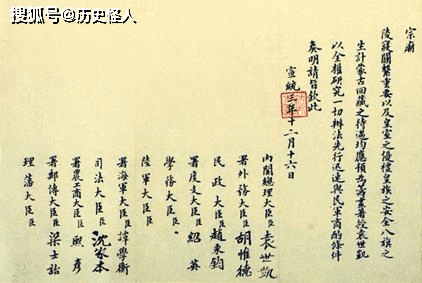 搜狐号@历史怪人
宗廟
陵寢關繫重要以及皇室之優禮皇族之安全八旗之
生計蒙古回藏之待遇均應預為籌畫著授袁世凱
以全權研究一切辦法先行迅速與民軍商酌條件
奏明請旨欽此
宣統三年十二月十六日
內閣總理大臣臣袁世凱
署外務大臣臣胡惟德
民政大臣臣趙秉鈞
署度支大臣臣紹英
學務大臣臣
陸軍大臣臣
署海軍大臣臣譚學衡
司法大臣臣沈家本
署農工商大臣臣熙彥
署郵傳大臣臣梁士詒
理藩大臣臣